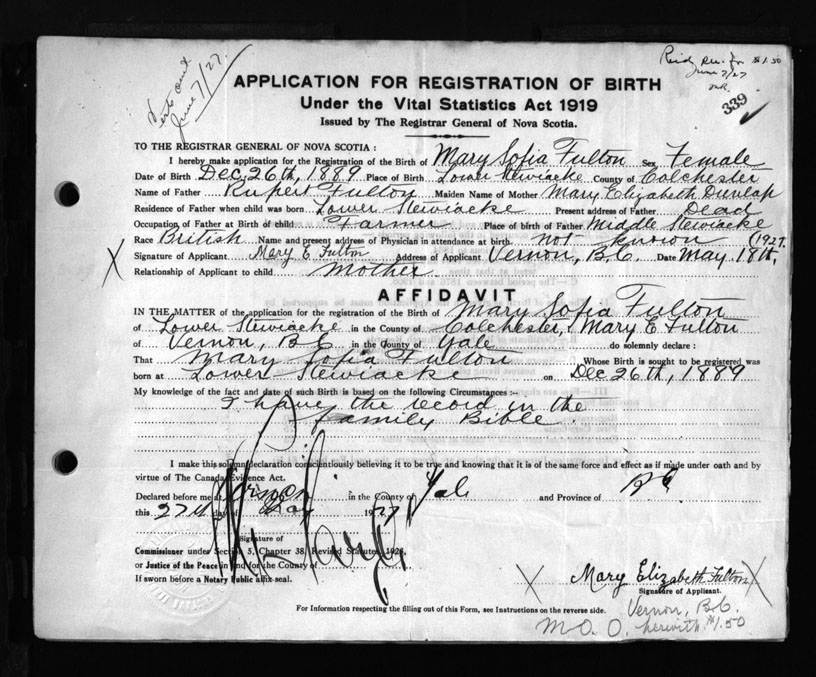 Recd Reg. fr $1.50
June 7/27
M.R.
339
Certs out
June 7/27.
APPLICATION FOR REGISTRATION OF BIRTH
Under the Vital Statistics Act 1919
Issued by The Registrar General of Nova Scotia.
TO THE REGISTRAR GENERAL OF NOVA SCOTIA :
I hereby make application for the Registration of the Birth of Mary Sofia Fulton Sex Female
Date of Birth Dec. 26th, 1889 Place of Birth Lower Stewiacke County of Colchester
Name of Father Rupert Fulton Maiden Name of Mother Mary Elizabeth Dunlap
Residence of Father when child was born Lower Stewiacke Present address of Father Dead
Occupation of Father at Birth of child Farmer Place of birth of Father Middle Stewiacke
Race British Name and present address of Physician in attendance at birth not known (1927.
X Signature of Applicant Mary E Fulton Address of Applicant Vernon, B.C. Date May 18th,
Relationship of Applicant to child Mother
AFFIDAVIT
IN THE MATTER of the application for the registration of the Birth of Mary Sofia Fulton
of Lower Stewiacke in the County of Colchester, I Mary E Fulton
of Vernon, B C in the County of Yale do solemnly declare :
That Mary Sofia Fulton Whose Birth is sought to be registered was
born at Lower Stewiacke on Dec 26th, 1889
My knowledge of the fact and date of such Birth is based on the following Circumstances :-
I have the record in the
family Bible.
I make this solemn declaration conscientiously believing it to be true and knowing that it is of the same force and effect as if made under oath and by
virtue of The Canada Evidence Act.
Declared before me at Vernon in the County of Yale and Province of B C
this 27th day of May 1927
Signature of
Commissioner under Section 5, Chapter 38, Revised Statutes, 1923.
or Justice of the Peace in and for the County of
If sworn before a Notary Public affix seal.
X Mary Elizabeth Fulton X
Signature of Applicant.
For Information respecting the filling out of this Form, see Instructions on the reverse side.
Vernon, B.C.
M.O.O. herewith $1.50